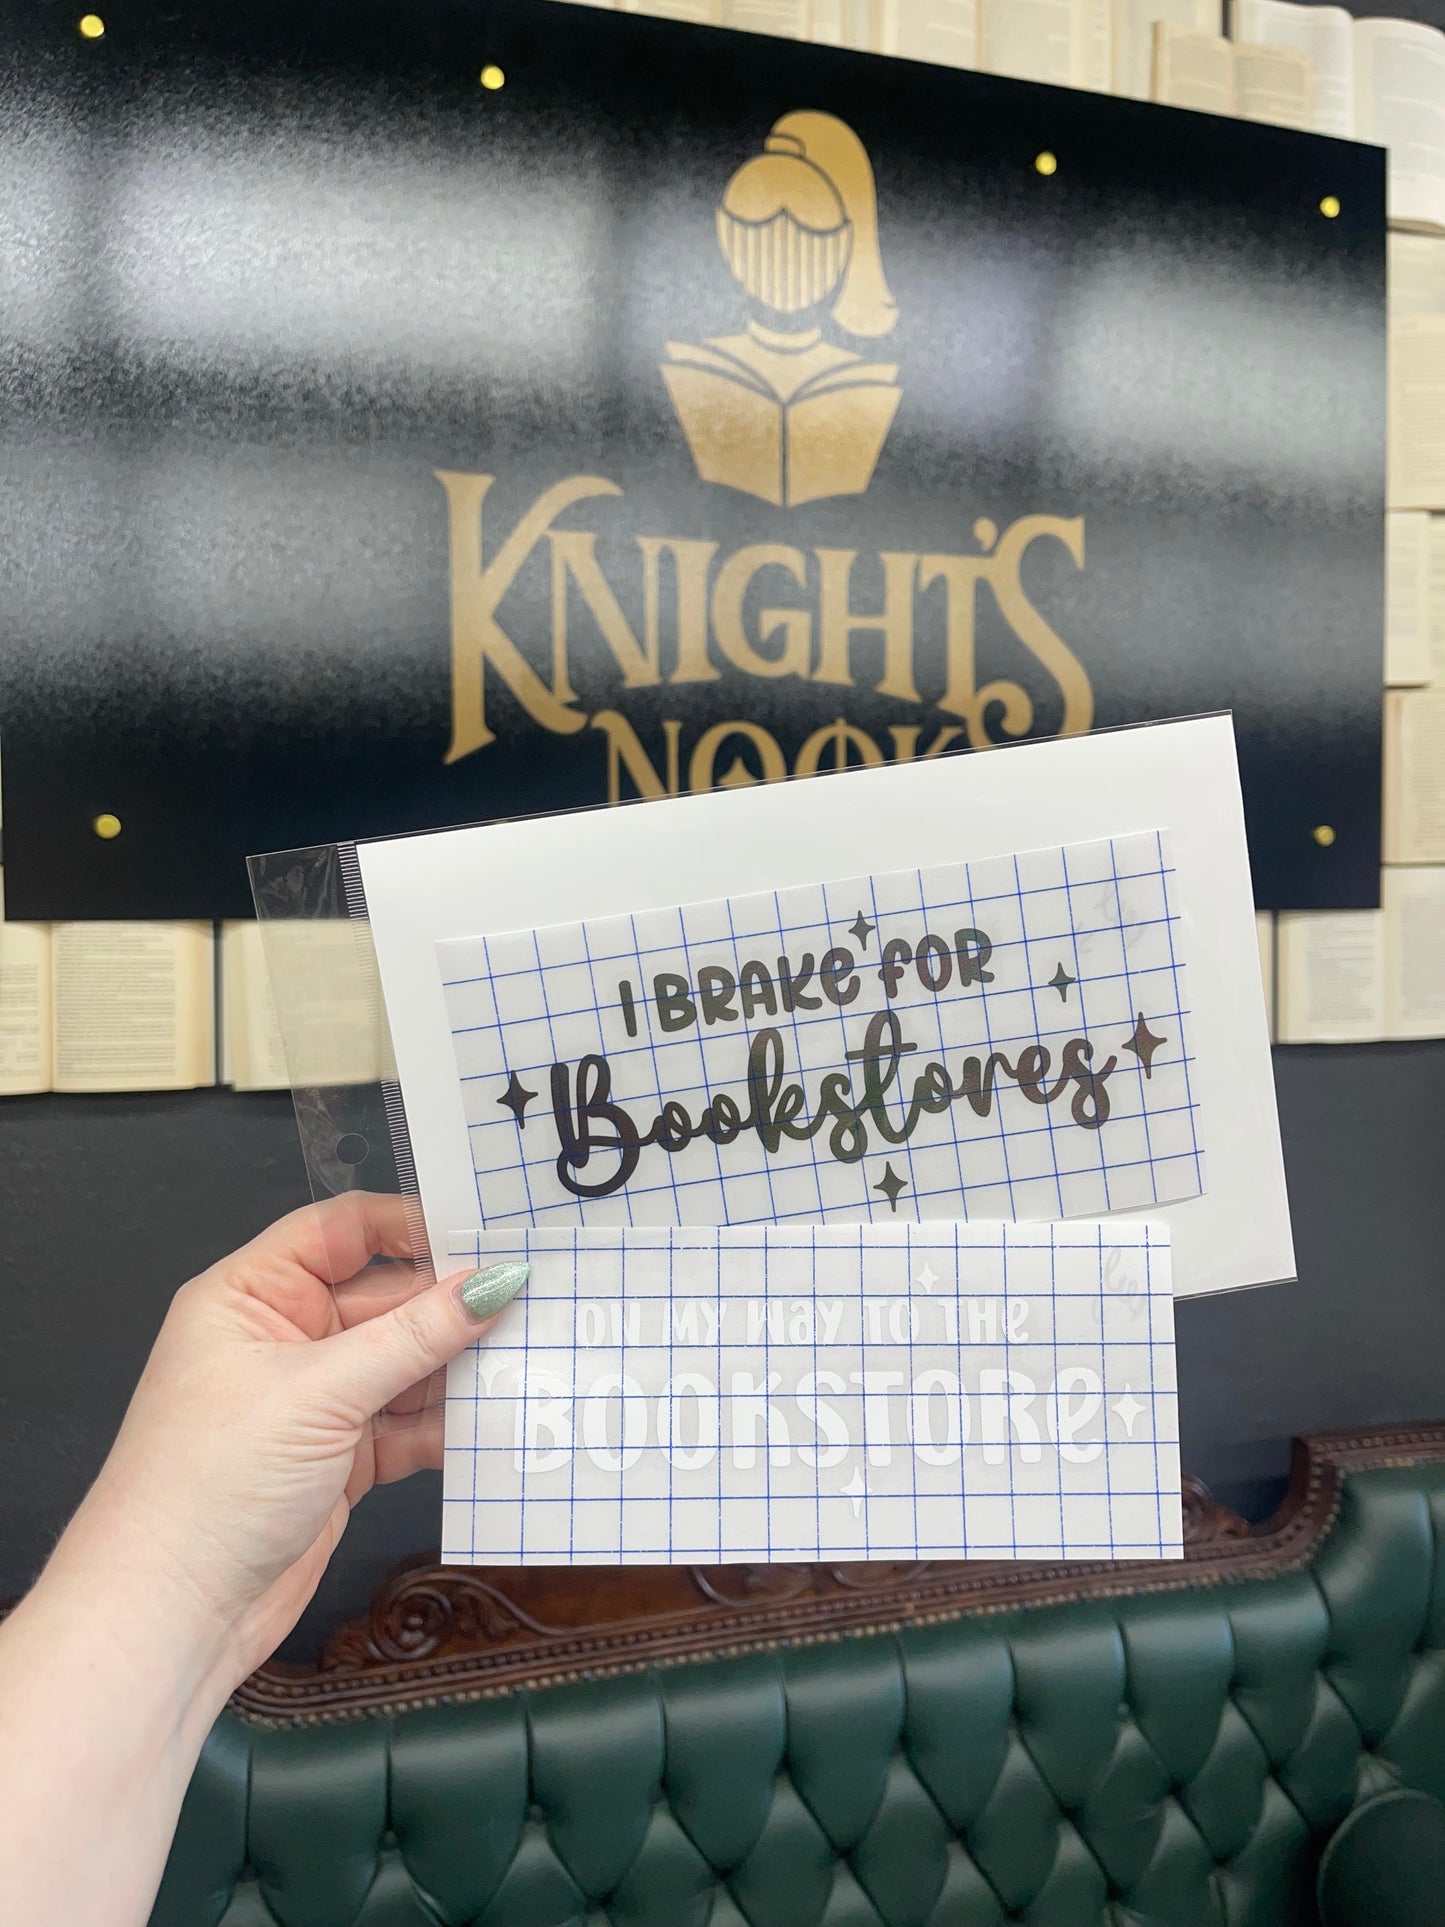 KNIGHT'S
NOOK
I BRAKE FOR
Bookstores
ON MY WAY TO THE
BOOKSTORE